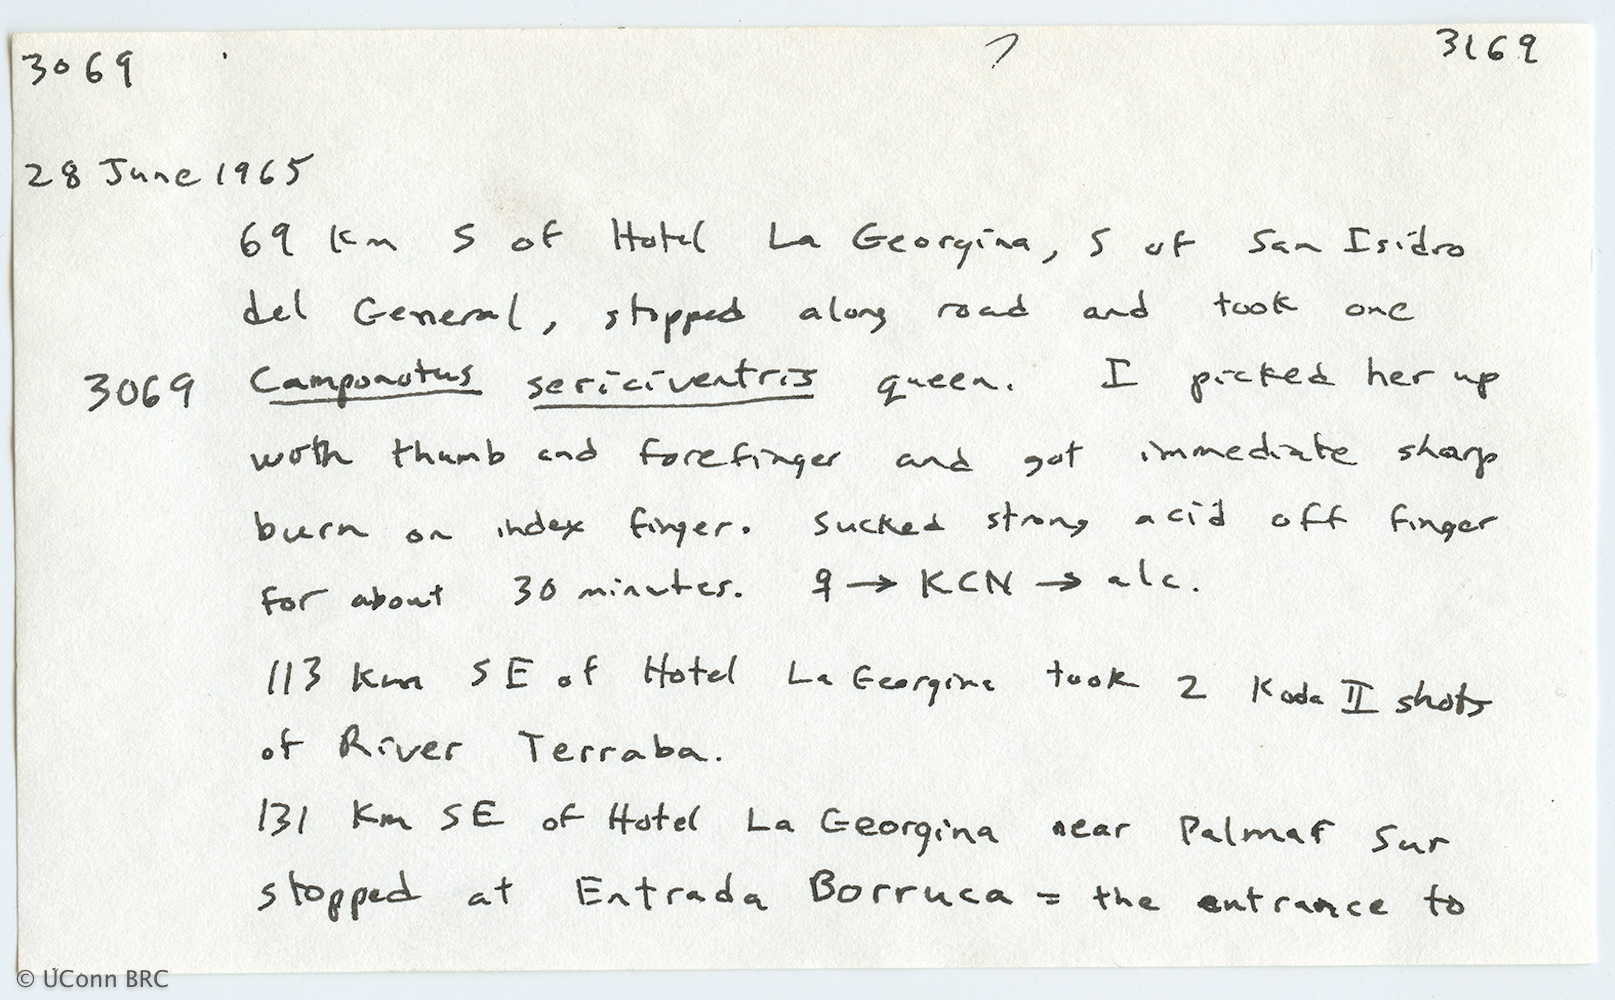 3069 7 3169
28 June 1965
69 Km S of Hotel La Georgina, S of San Isidro
del General, stopped along road and took one
3069 Camponotus sericiventris queen. I picked her up
with thumb and forefinger and got immediate sharp
burn on index finger. Sucked strong acid off finger
for about 30 minutes. ♀ → KCN → alc.
113 Km SE of Hotel La Georgina took 2 Koda II shots
of River Terraba.
131 Km SE of Hotel La Georgina near Palmar Sur
stopped at Entrada Borruca = the entrance to
© UConn BRC